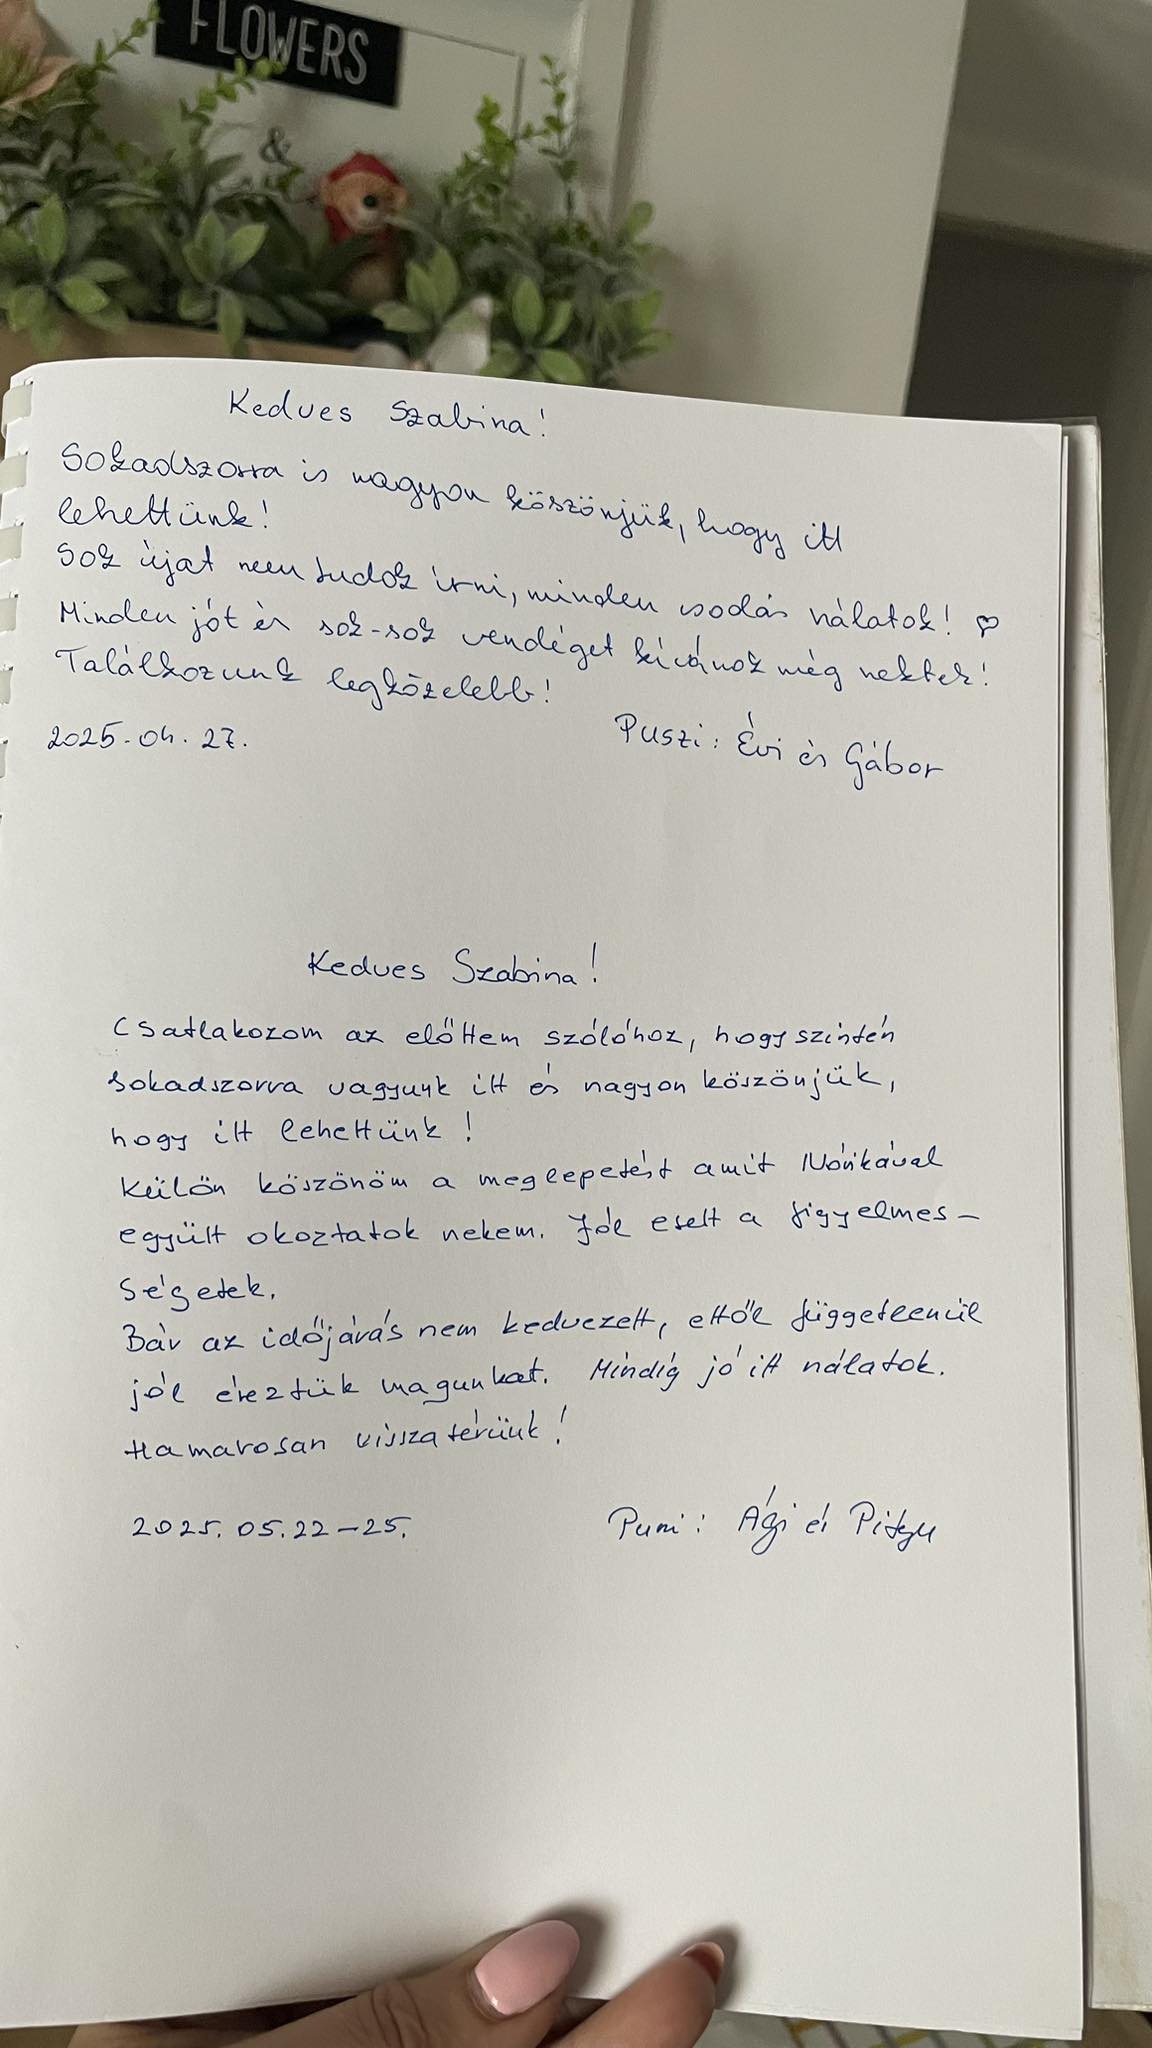 FLOWERS
&
Kedves Szabina!
Sokadszorra is nagyon köszönjük, hogy itt
lehettünk!
Sok újat nem tudok írni, minden csodás nálatok! ♡
Minden jót és sok-sok vendéget kívánok még nektek!
Találkozunk legközelebb!
2025.04.27.
Puszi: Évi és Gábor
Kedves Szabina!
Csatlakozom az előttem szólóhoz, hogy szintén
sokadszorra vagyunk itt és nagyon köszönjük,
hogy itt lehettünk!
Külön köszönöm a meglepetést amit Nórikával
együtt okoztatok nekem. Jól esett a figyelmes-
ségetek.
Bár az időjárás nem kedvezett, ettől függetlenül
jól éreztük magunkat. Mindíg jó itt nálatok.
Hamarosan visszatérünk!
2025.05.22-25.
Puszi: Ági és Pityu